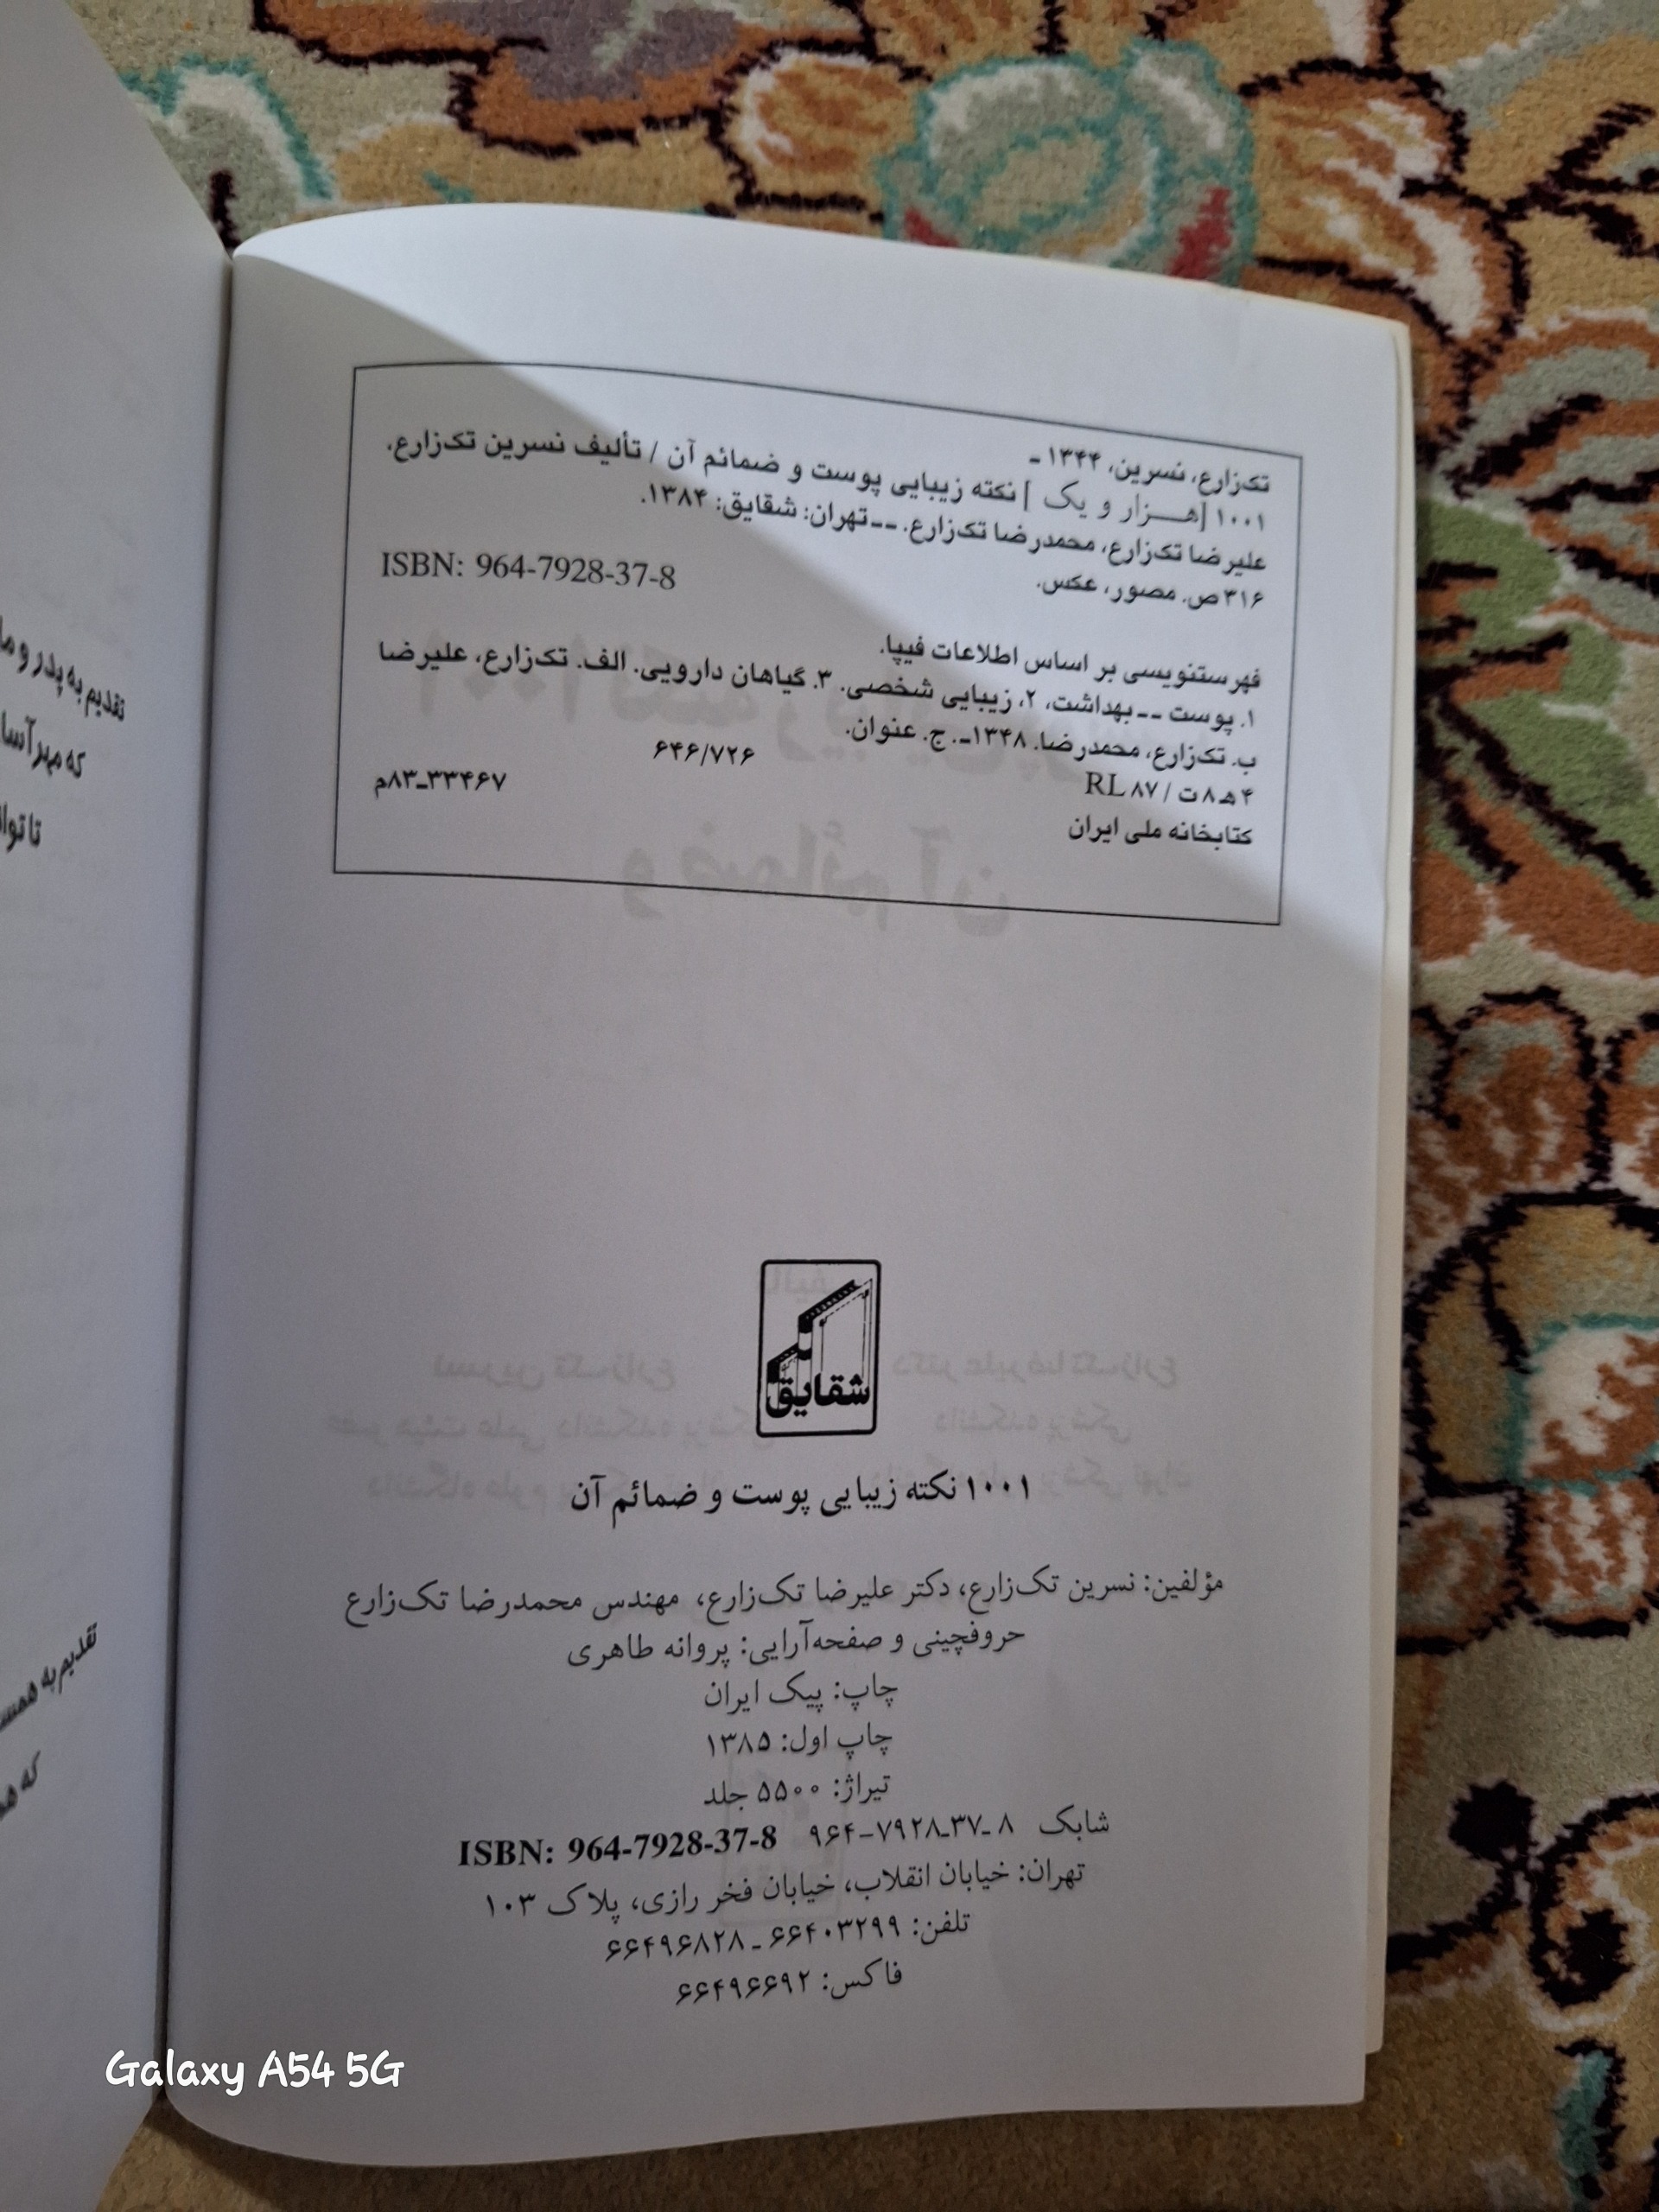 تک‌زارع، نسرین، ۱۳۴۴ ـ
۱۰۰۱ [هـزار و یک ] نکته زیبایی پوست و ضمائم آن / تألیف نسرین تک‌زارع،
علیرضا تک‌زارع، محمدرضا تک‌زارع. ــ تهران: شقایق: ۱۳۸۴.
۳۱۶ ص. مصور، عکس.
ISBN: 964-7928-37-8
فهرستنویسی بر اساس اطلاعات فیپا.
۱. پوست ــ بهداشت، ۲، زیبایی شخصی. ۳. گیاهان دارویی. الف. تک‌زارع، علیرضا
ب. تک‌زارع، محمدرضا. ۱۳۴۸ـ. ج. عنوان.
۶۴۶/۷۲۶
۴ هـ ۸ ت / RL ۸۷
۸۳ـ۳۳۴۶۷م
کتابخانه ملی ایران
شقایق
۱۰۰۱ نکته زیبایی پوست و ضمائم آن
مؤلفین: نسرین تک‌زارع، دکتر علیرضا تک‌زارع، مهندس محمدرضا تک‌زارع
حروفچینی و صفحه‌آرایی: پروانه طاهری
چاپ: پیک ایران
چاپ اول: ۱۳۸۵
تیراژ: ۵۵۰۰ جلد
شابک ۸ ـ۳۷ـ۷۹۲۸–۹۶۴ ISBN: 964-7928-37-8
تهران: خیابان انقلاب، خیابان فخر رازی، پلاک ۱۰۳
تلفن: ۶۶۴۰۳۲۹۹ ـ ۶۶۴۹۶۸۲۸
فاکس: ۶۶۴۹۶۶۹۲
تقدیم به پدر و
که مهر
تقدیم به
که
Galaxy A54 5G